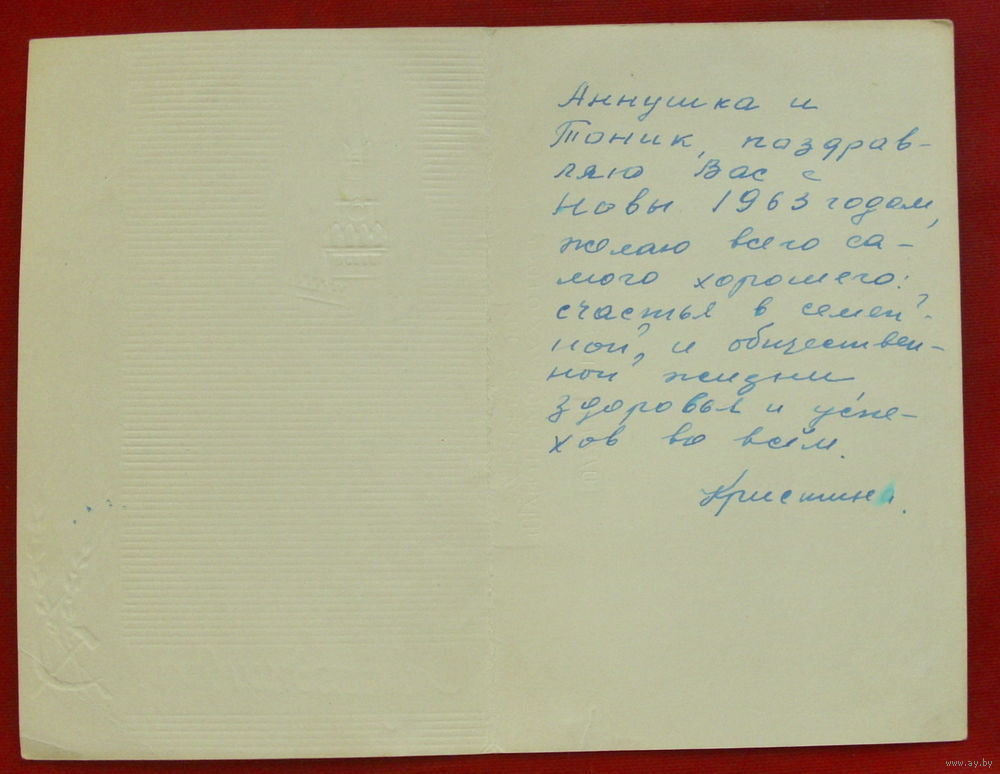 Аннушка и
Тоник, поздрав-
ляю Вас с
Новы 1963 годом,
желаю всего са-
мого хорошего:
счастья в семей-
ной, и обществен-
ной жизни
здоровья и успе-
хов во всём.
Кристина.
www.ay.by